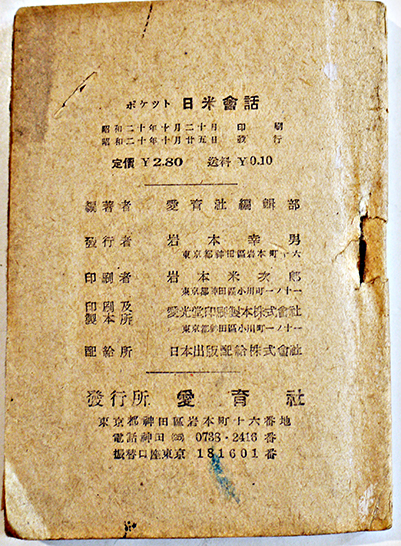 ポケット 日米會話
昭和二十年十月二十月 印刷
昭和二十年十月廿五日 發行
定價 ¥2.80 送料 ¥0.10
編著者 愛育社編輯部
發行者 岩本幸男
東京都神田區岩本町十六
印刷者 岩本米次郎
東京都神田區小川町一ノ十一
印刷及
製本所 愛光堂印刷製本株式會社
東京都神田區小川町一ノ十一
配給所 日本出版配給株式會社
發行所 愛育社
東京都神田區岩本町十六番地
電話神田 0738・2416番
振替口座東京 181601番